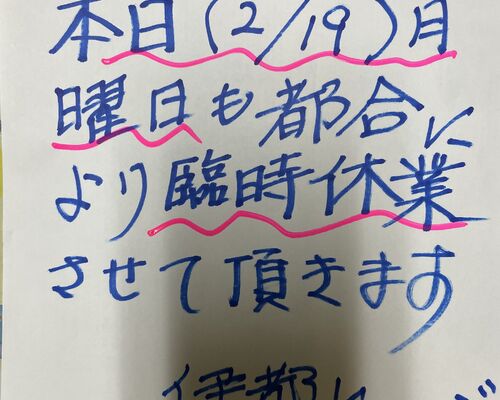 本日(2/19)月
曜日も都合に
より臨時休業
させて頂きます
伊都